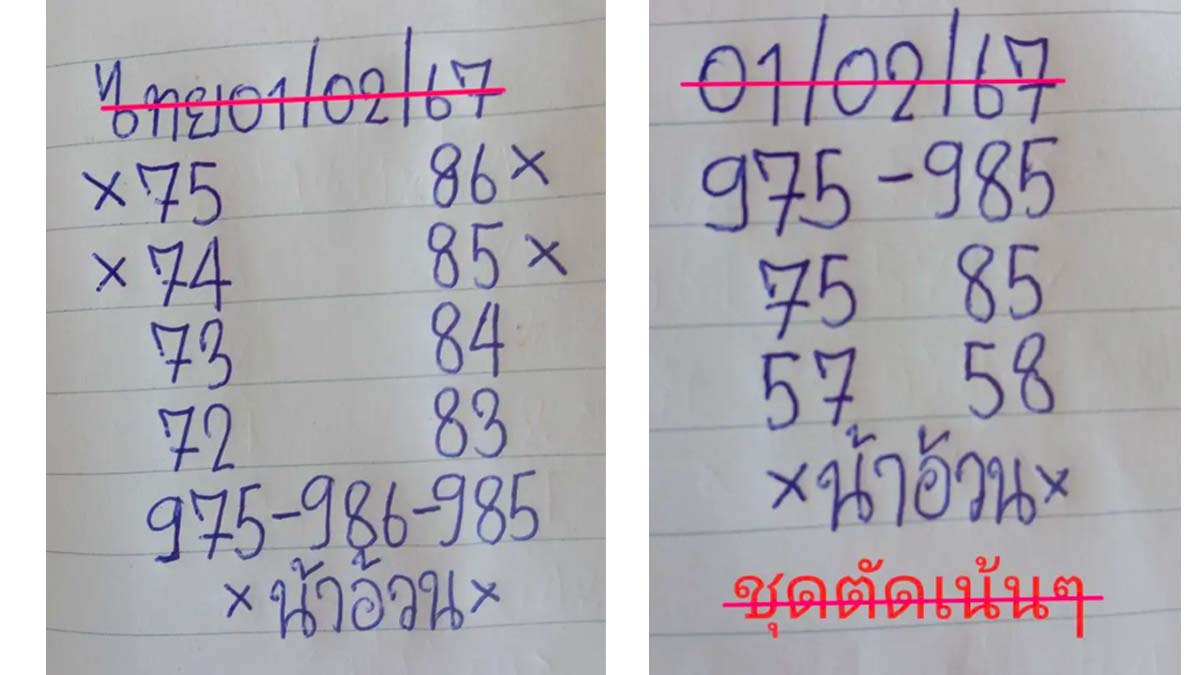 ไทย01/02/67
×75 86×
×74 85×
73 84
72 83
975-986-985
×น้าอ้วน×
01/02/67
975-985
75 85
57 58
×น้ำอ้วน×
ชุดตัดเน้นๆ